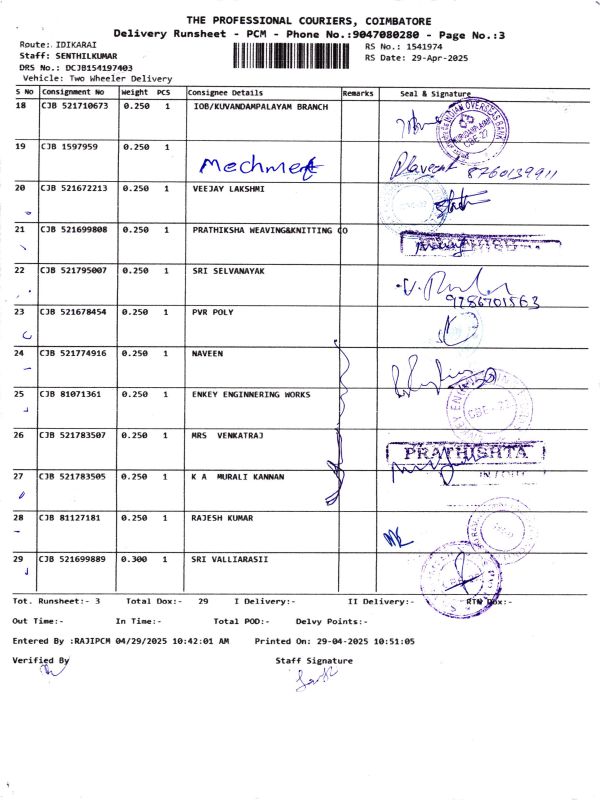 THE PROFESSIONAL COURIERS, COIMBATORE
Delivery Runsheet - PCM - Phone No.:9047080280 - Page No.:3
Route: IDIKARAI RS No.: 1541974
Staff: SENTHILKUMAR RS Date: 29-Apr-2025
DRS No.: DCJB154197403
Vehicle: Two Wheeler Delivery
S No Consignment No Weight PCS Consignee Details Remarks Seal & Signature
18 CJB 521710673 0.250 1 IOB/KUVANDAMPALAYAM BRANCH
INDIAN OVERSEAS BANK
CBE-27
19 CJB 1597959 0.250 1
8760139911
20 CJB 521672213 0.250 1 VEEJAY LAKSHMI
21 CJB 521699808 0.250 1 PRATHIKSHA WEAVING&KNITTING CO
22 CJB 521795007 0.250 1 SRI SELVANAYAK
9786701563
23 CJB 521678454 0.250 1 PVR POLY
24 CJB 521774916 0.250 1 NAVEEN
25 CJB 81071361 0.250 1 ENKEY ENGINNERING WORKS
26 CJB 521783507 0.250 1 MRS VENKATRAJ
PRATHISHTA
27 CJB 521783505 0.250 1 K A MURALI KANNAN
28 CJB 81127181 0.250 1 RAJESH KUMAR
29 CJB 521699889 0.300 1 SRI VALLIARASII
Tot. Runsheet:- 3 Total Dox:- 29 I Delivery:- II Delivery:- RTN Dox:-
Out Time:- In Time:- Total POD:- Delvy Points:-
Entered By :RAJIPCM 04/29/2025 10:42:01 AM Printed On: 29-04-2025 10:51:05
Verified By Staff Signature